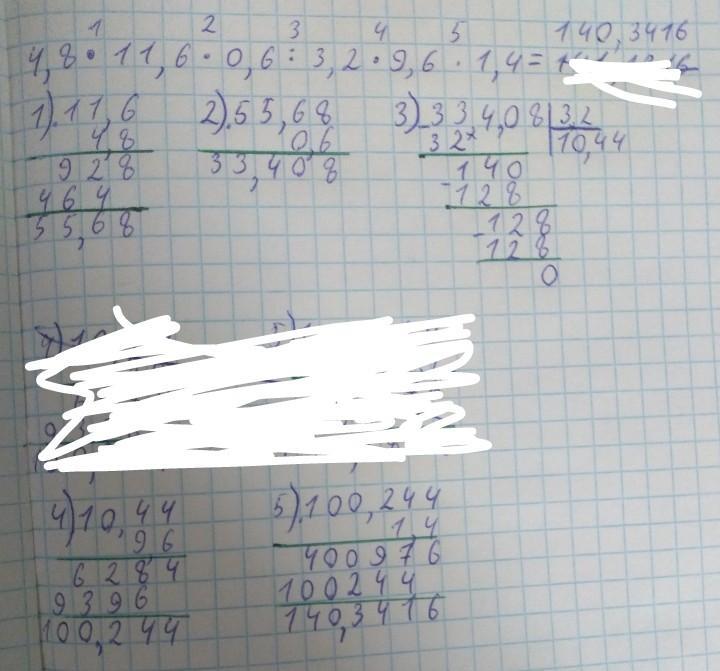 1 2 3 4 5 140,3416
4,8 · 11,6 · 0,6 : 3,2 · 9,6 · 1,4 =
1) 11,6
4,8
928
464
55,68
2) 55,68
0,6
33,408
3) 334,08 | 3,2
32 10,44
140
128
128
128
0
4) 10,44
9,6
6284
9396
100,244
5) 100,244
1,4
400976
100244
140,3416